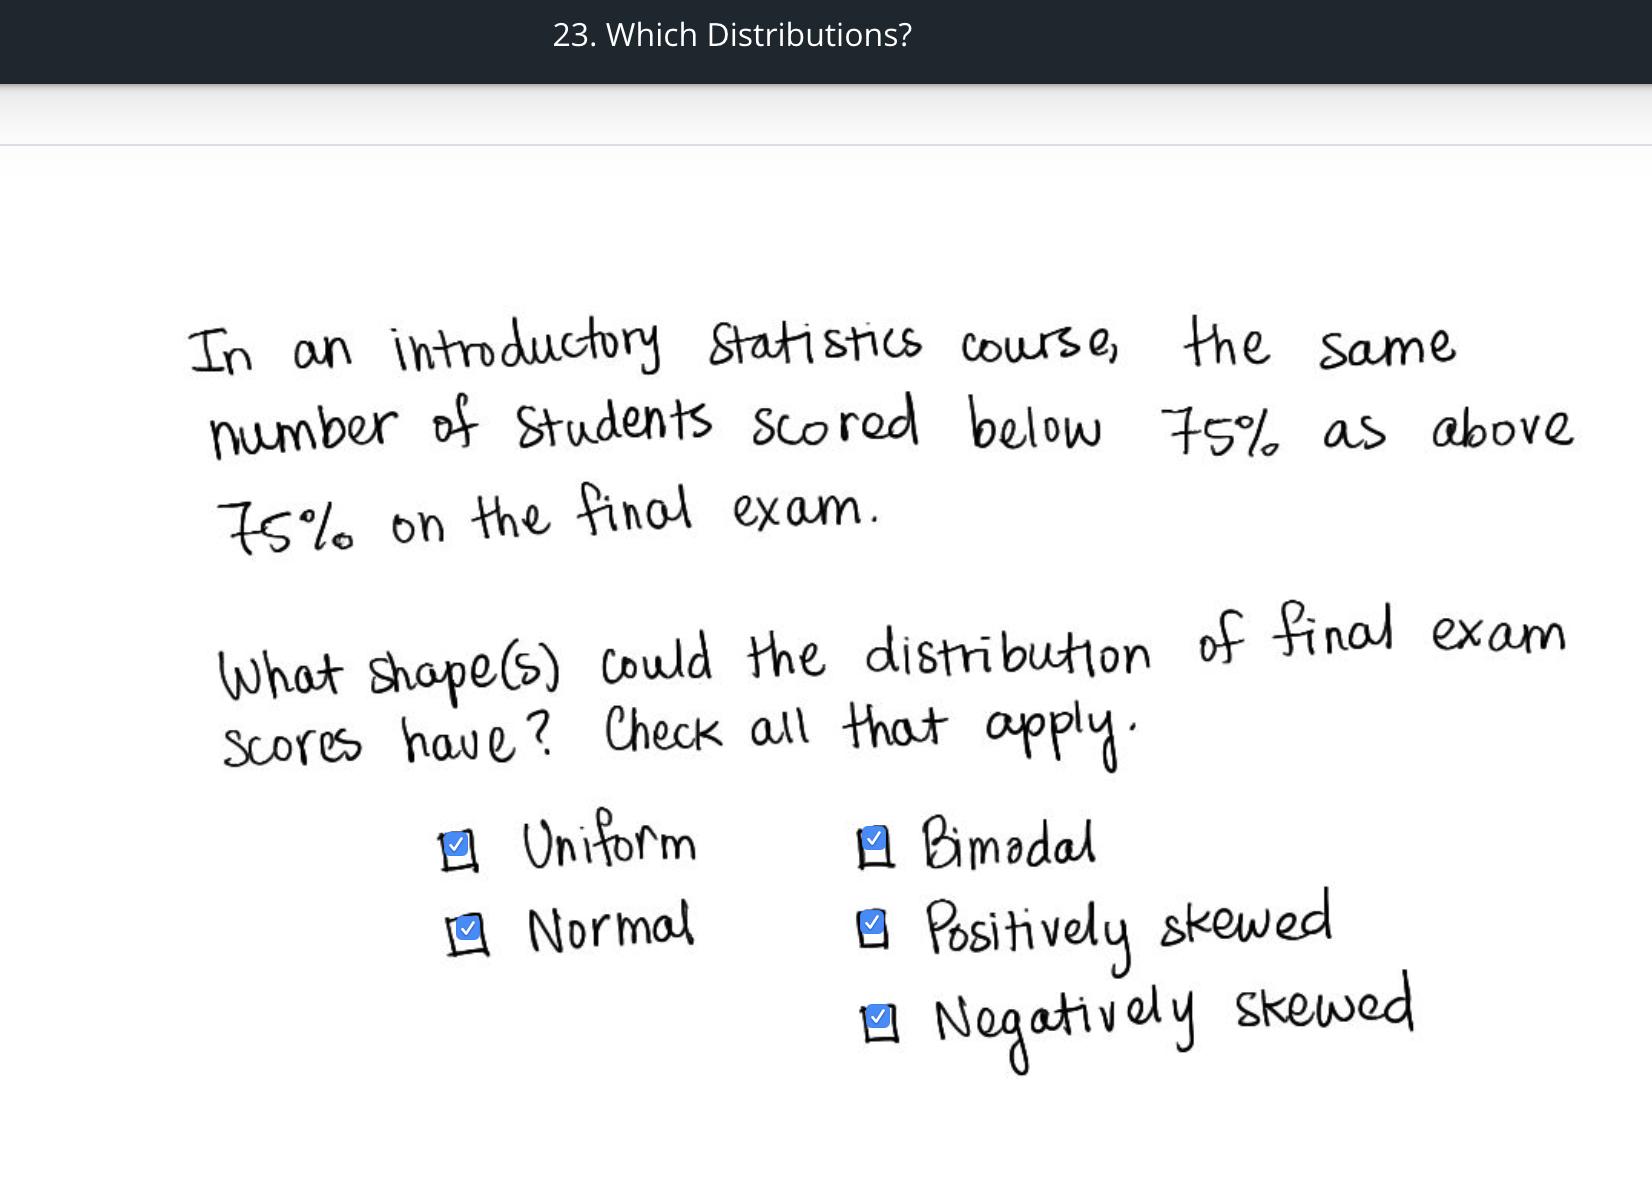 23. Which Distributions?
In an introductory Statistics course, the same
number of Students scored below 75% as above
75% on the final exam.
What shape(s) could the distribution of final exam
scores have? Check all that apply.
Uniform
Bimodal
Normal
Positively skewed
Negatively skewed